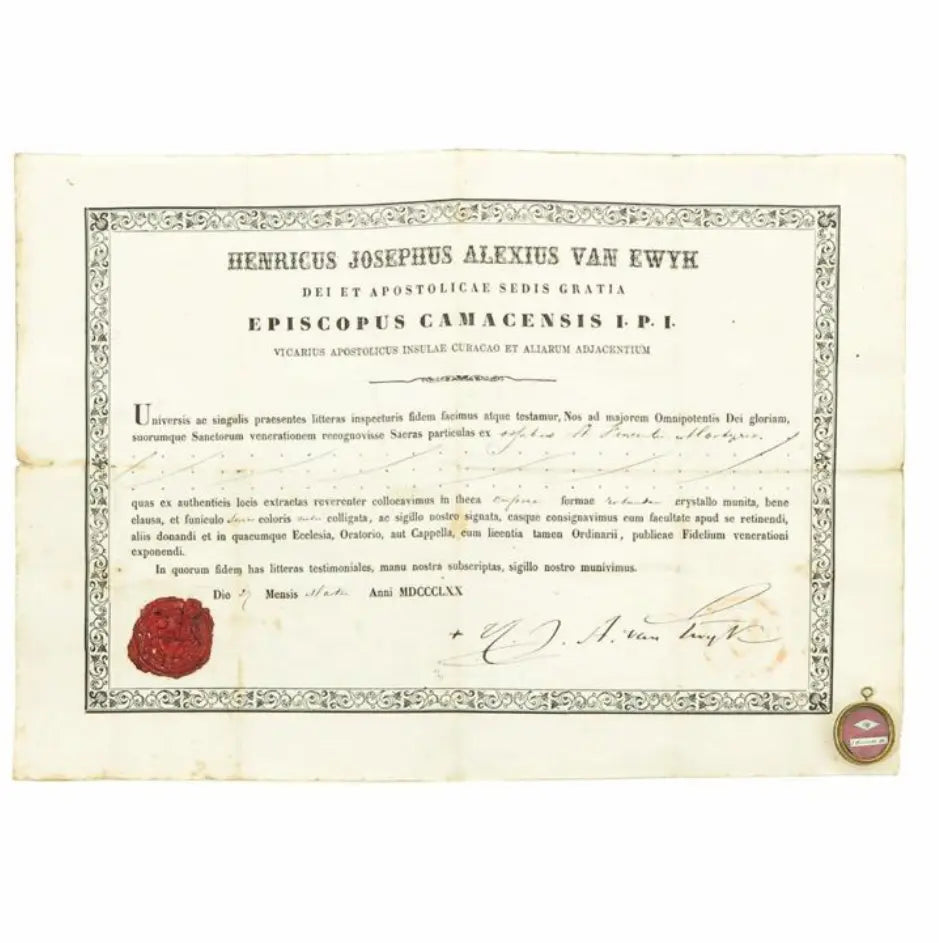 HENRICUS JOSEPHUS ALEXIUS VAN EWYK
DEI ET APOSTOLICAE SEDIS GRATIA
EPISCOPUS CAMACENSIS I. P. I.
VICARIUS APOSTOLICUS INSULAE CURACAO ET ALIARUM ADJACENTIUM
Universis ac singulis praesentes litteras inspecturis fidem facimus atque testamur, Nos ad majorem Omnipotentis Dei gloriam,
suorumque Sanctorum venerationem recognovisse Sacras particulas ex ossibus Martyris.
quas ex authenticis locis extractas reverenter collocavimus in theca formae rotundae crystallo munita, bene
clausa, et funiculo coloris colligata, ac sigillo nostro signata, easque consignavimus cum facultate apud se retinendi,
aliis donandi et in quacumque Ecclesia, Oratorio, aut Cappella, cum licentia tamen Ordinarii, publicae Fidelium venerationi
exponendi.
In quorum fidem has litteras testimoniales, manu nostra subscriptas, sigillo nostro munivimus.
Die Mensis Anni MDCCCLXX
+ H. J. A. van Ewyk